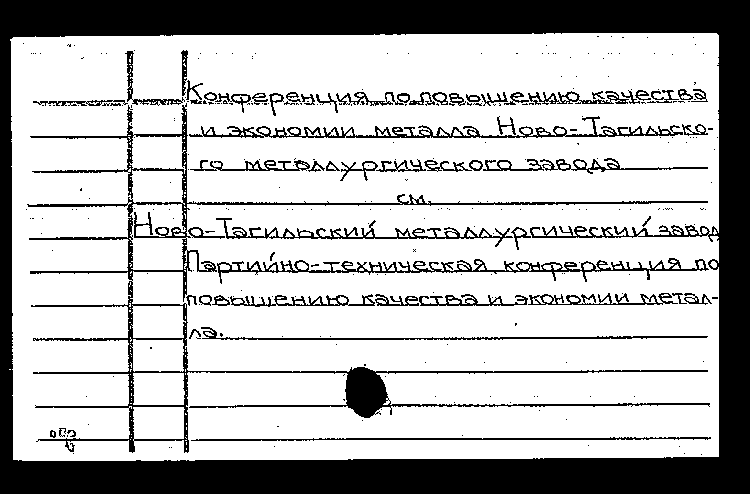 Конференция по повышению качества
и экономии металла Ново-Тагильско-
го металлургического завода
см.
Ново-Тагильский металлургический завод
Партийно-техническая конференция по
повышению качества и экономии метал-
ла.